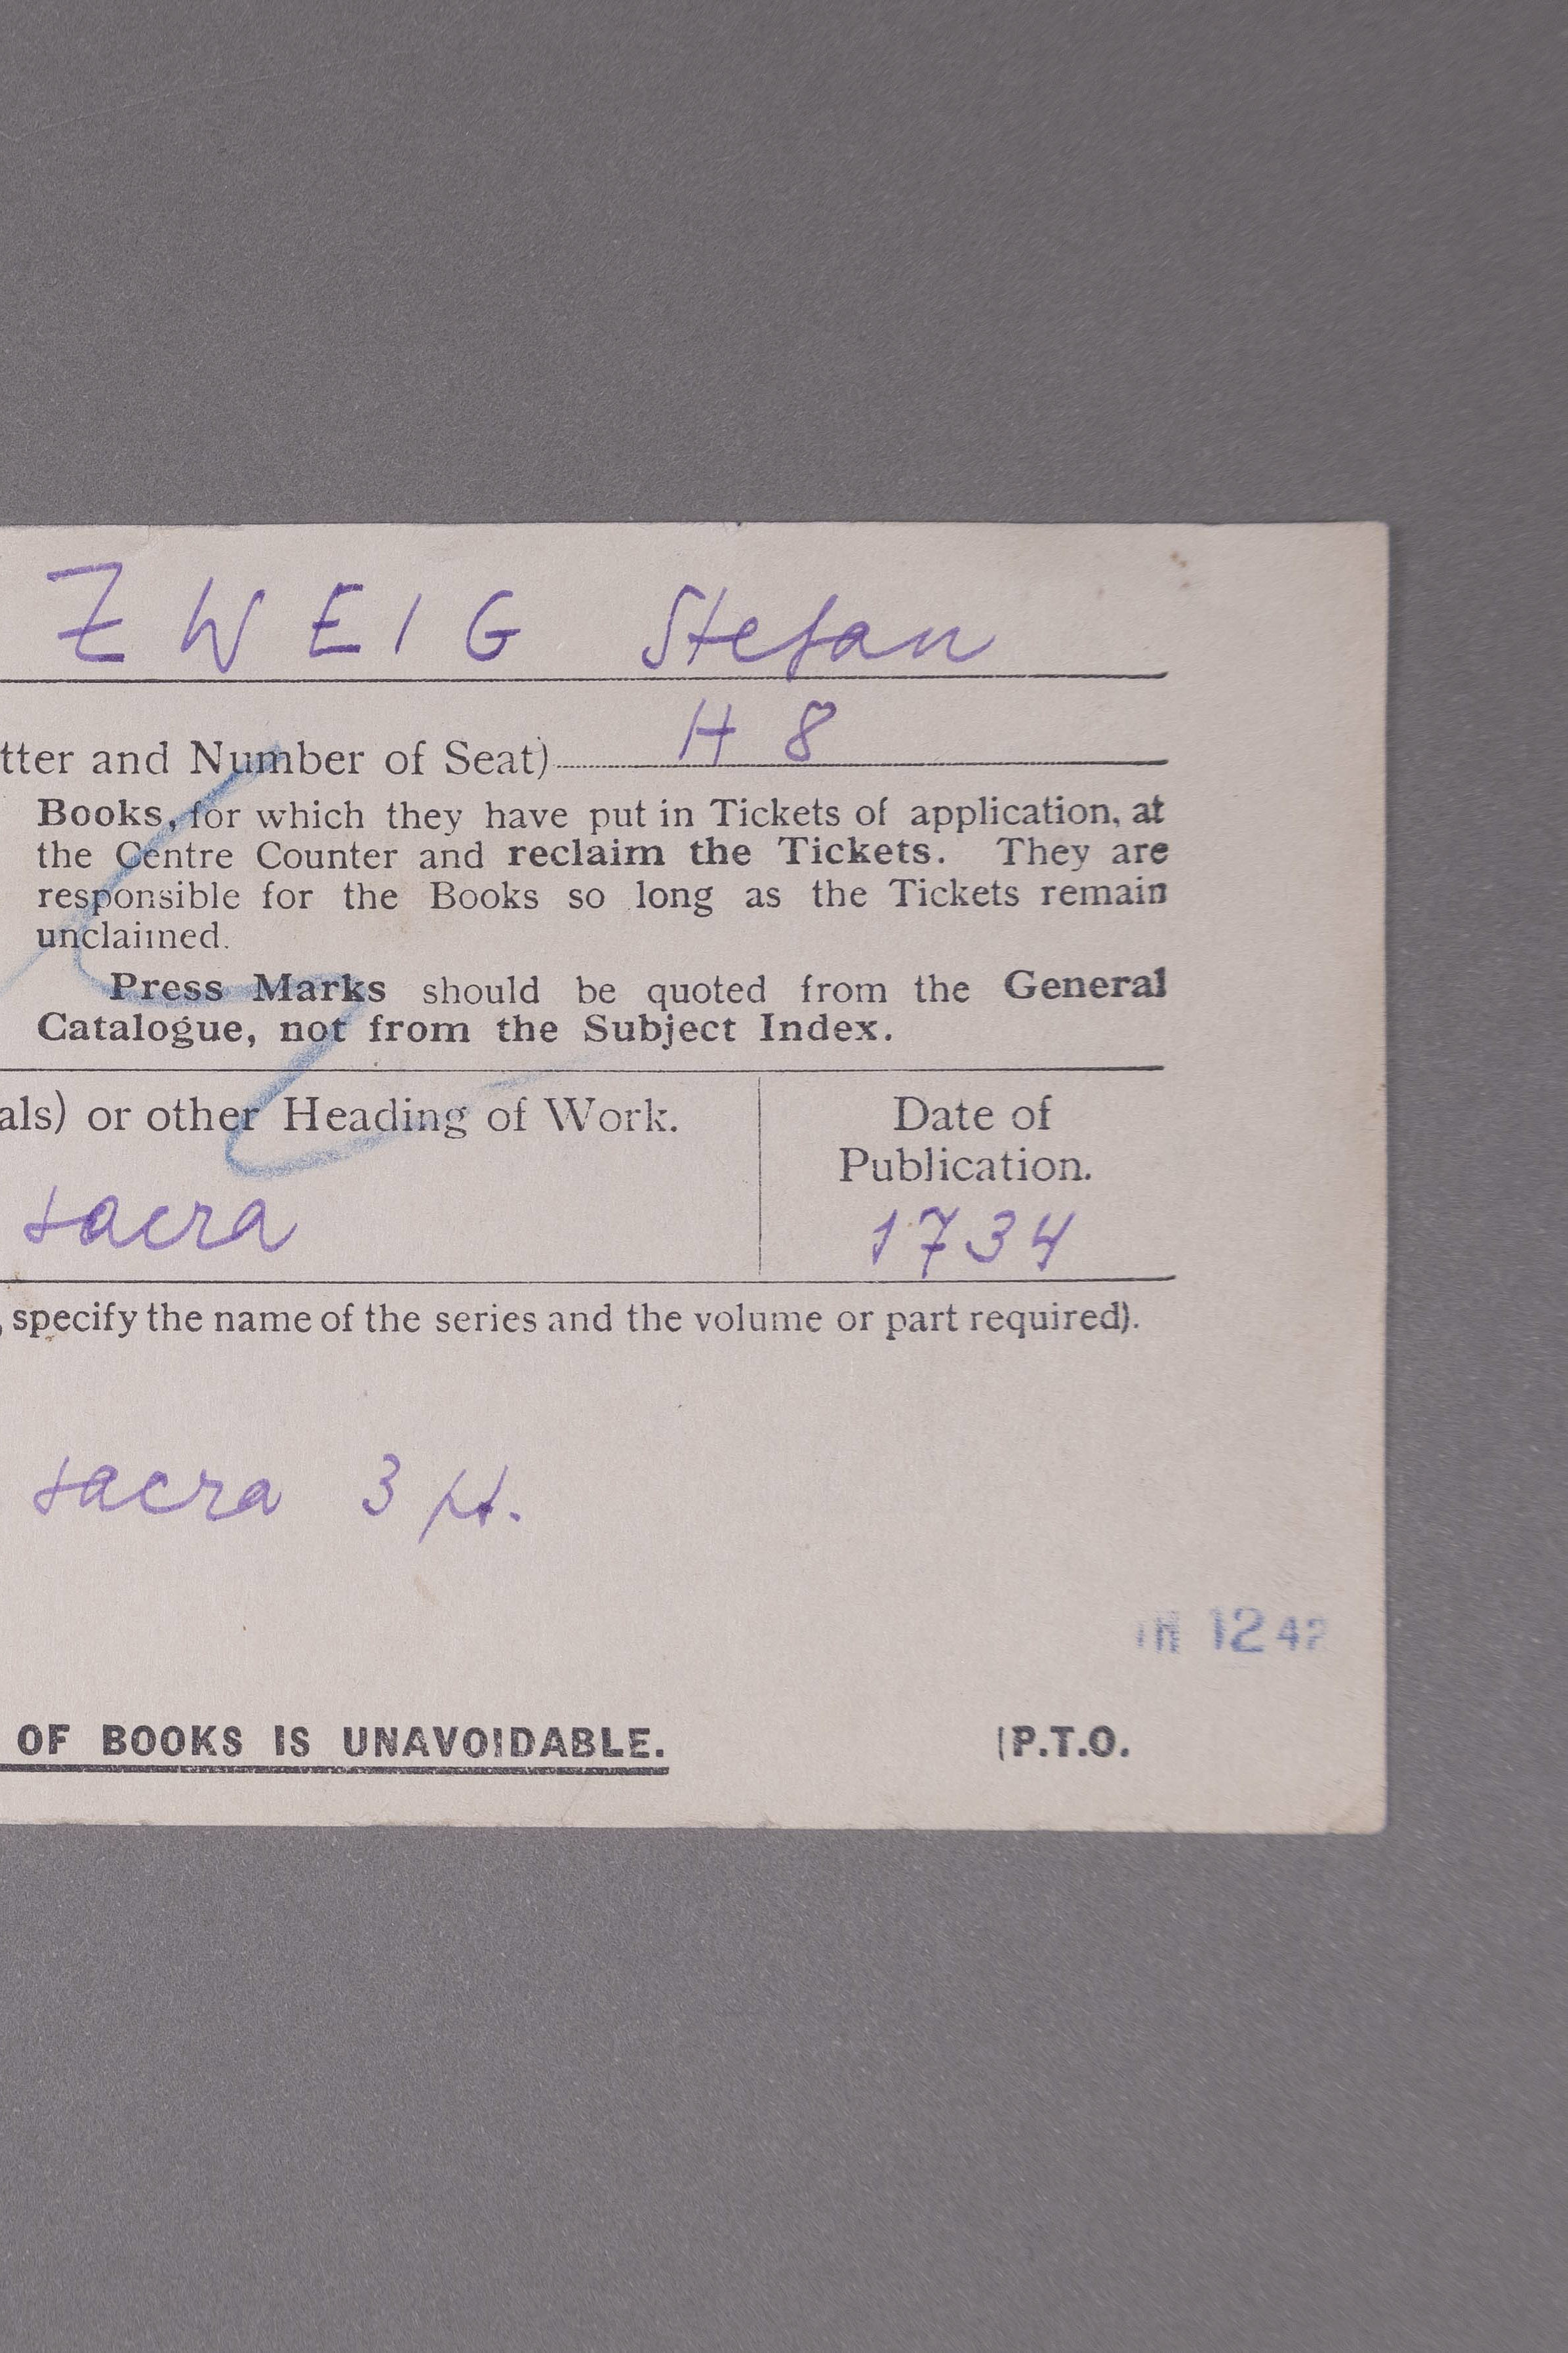 ZWEIG Stefan
tter and Number of Seat) H 8
Books, for which they have put in Tickets of application, at
the Centre Counter and reclaim the Tickets. They are
responsible for the Books so long as the Tickets remain
unclaimed.
Press Marks should be quoted from the General
Catalogue, not from the Subject Index.
als) or other Heading of Work.
Date of
Publication.
sacra
1734
, specify the name of the series and the volume or part required).
sacra 3 pt.
12 42
OF BOOKS IS UNAVOIDABLE.
(P.T.O.